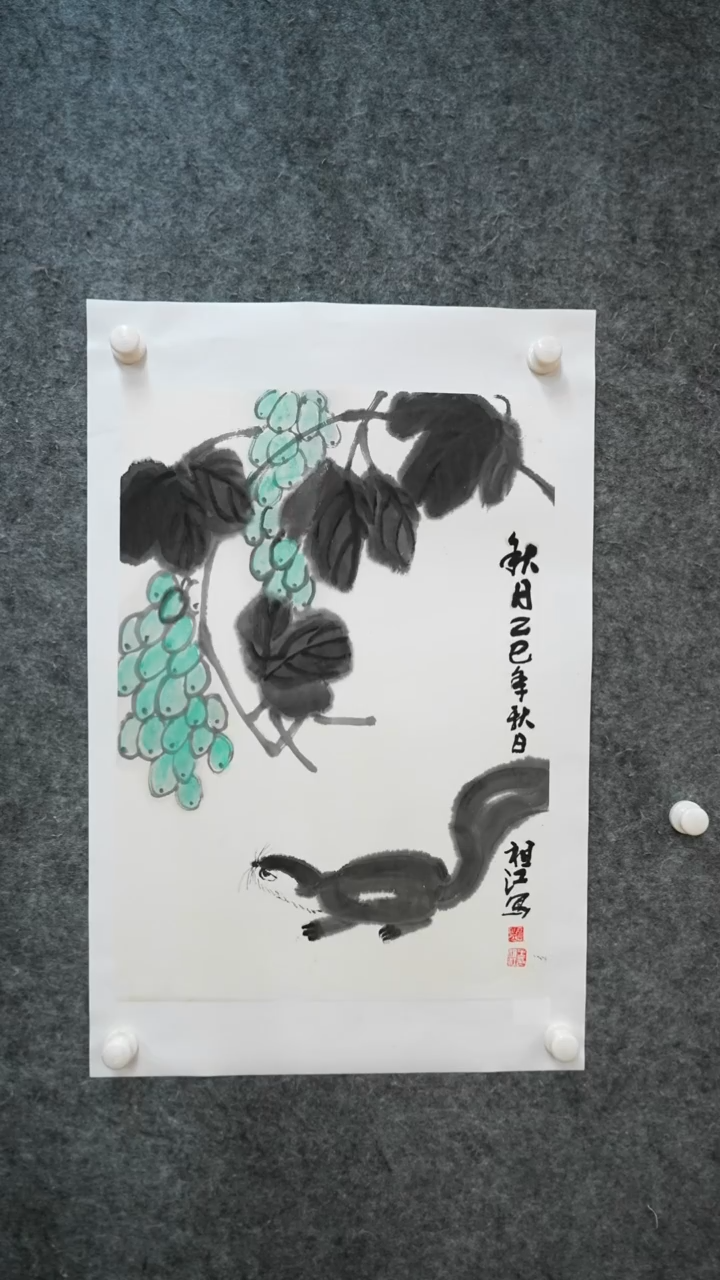 秋月乙巳年秋日
祖江写